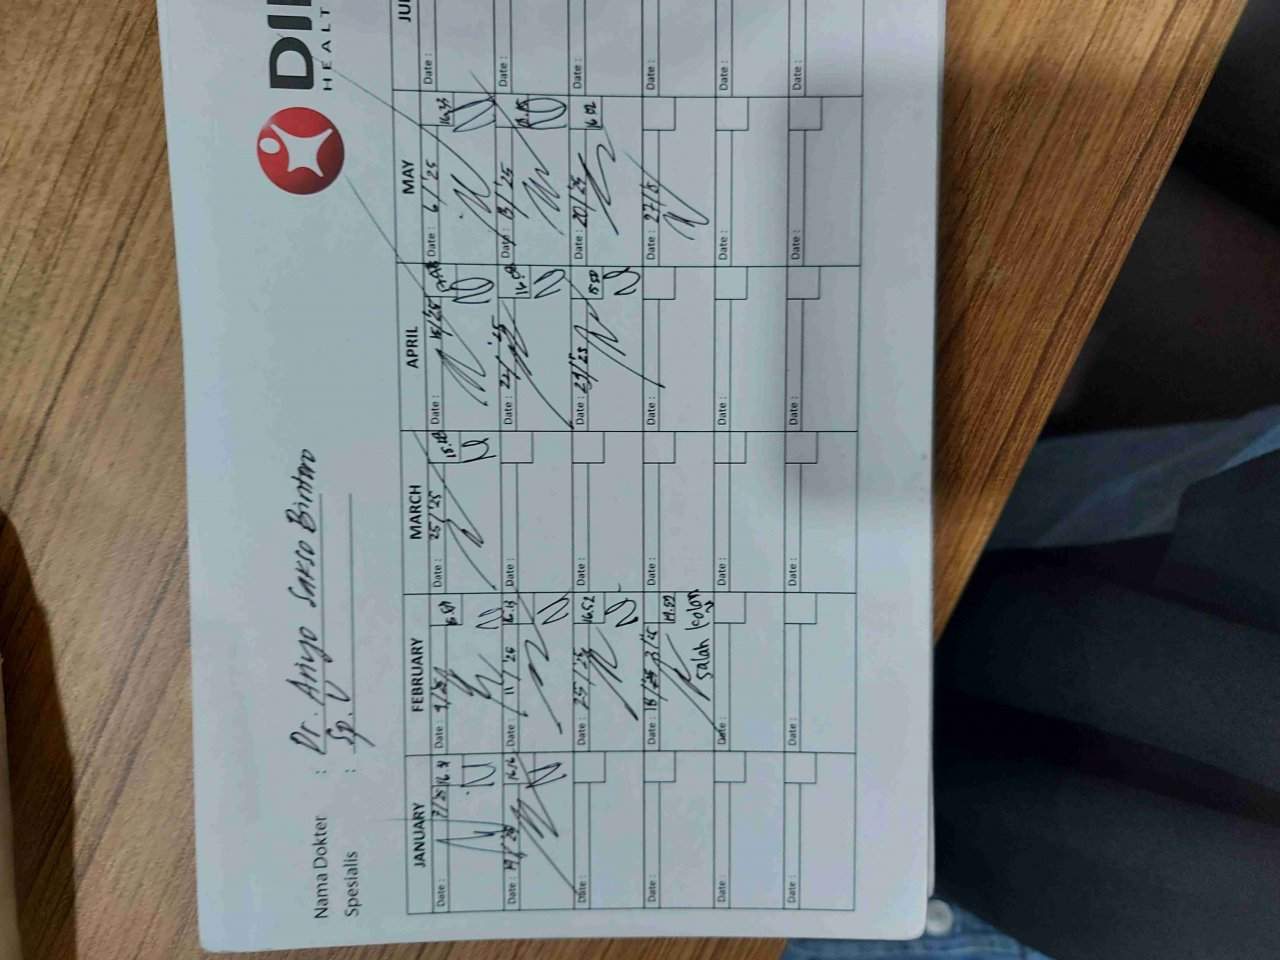 DI
HEALT
Nama Dokter : Dr. Ariyo Sakso Bintoro
Spesialis : Sp. U
JANUARY FEBRUARY MARCH APRIL MAY JU
Date : 7/25 Date : 4/25 16.51 Date : 25/'25 Date : 15/'25 Date : 6/'25 16.33 Date :
Date : Date : 11/'25 16.13 Date : Date : 22/'25 Date : 13/'25 Date :
Date : Date : 25/'25 16.52 Date : Date : 29/'25 15.50 Date : 20/'25 16.02 Date :
Date : Date : 18/25 Date : Date : Date : 27/5 Date :
Salah kolom
Date : Date : Date : Date : Date : Date :
Date : Date : Date : Date : Date : Date :